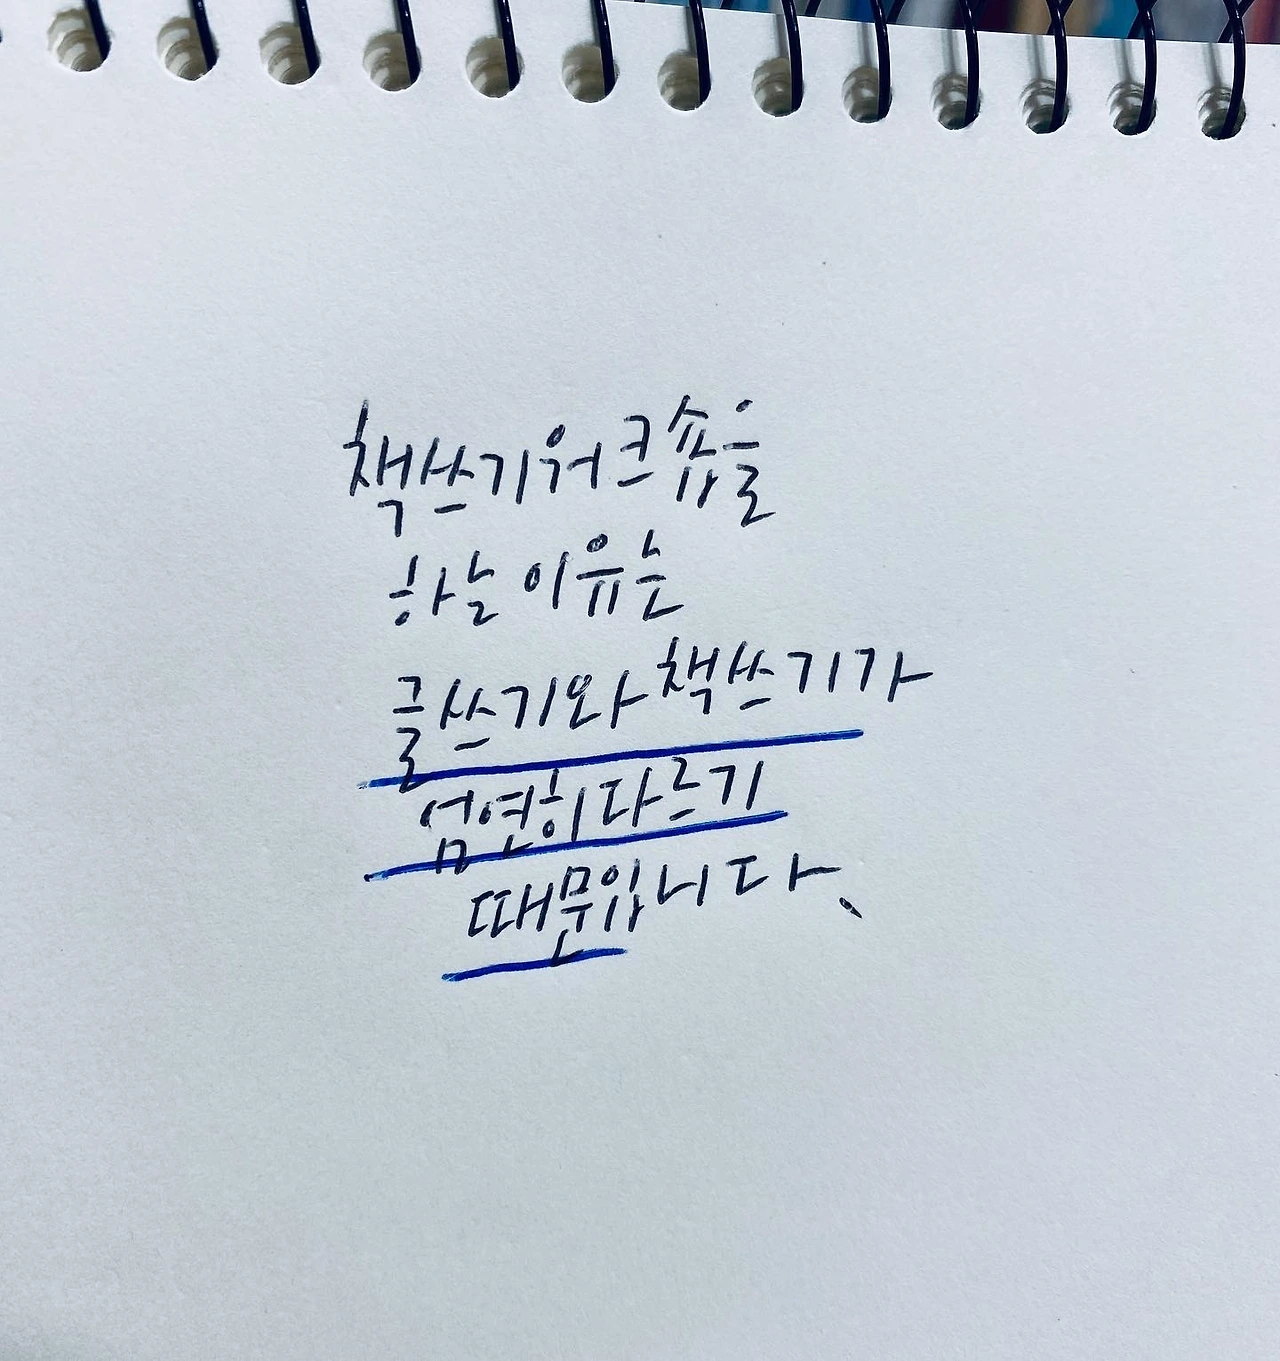 책쓰기워크숍을
하는 이유는
글쓰기와 책쓰기가
엄연히 다르기
때문입니다.